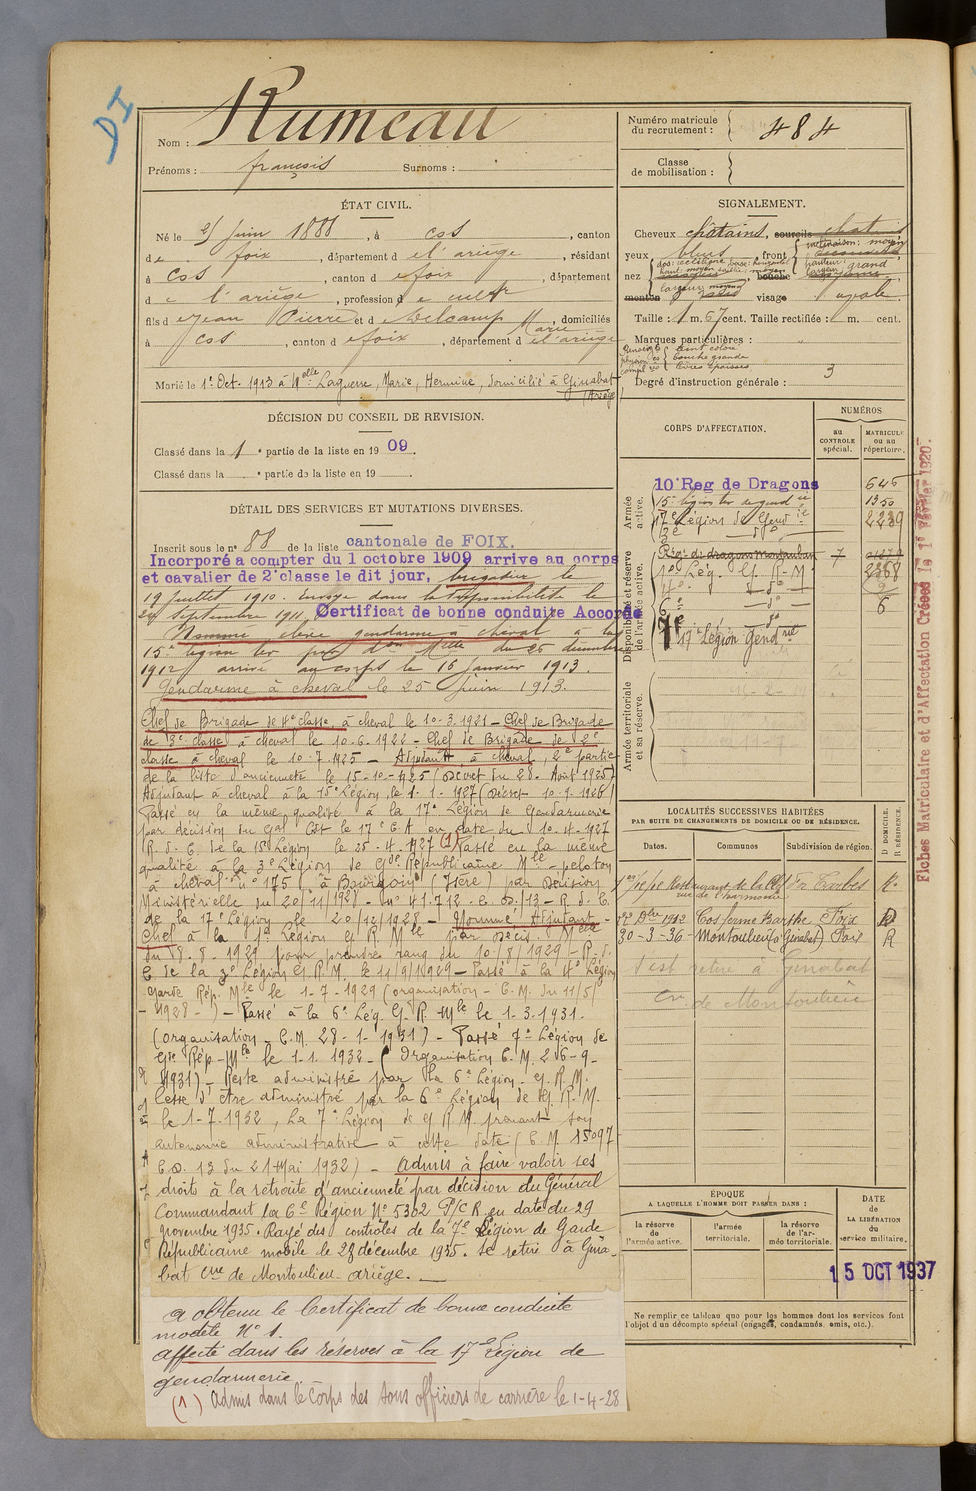 DI
Nom : Rumeau
Prénoms : françois Surnoms :
ÉTAT CIVIL.
Né le 25 Juin 1888, à Cos, canton
de foix, département de l'ariège, résidant
à Cos, canton de foix, département
de l'ariège, profession de cultr
fils de Jean Pierre et de Delcamp Marie, domiciliés
à Cos, canton de foix, département de l'ariège
Marié le 1er Oct. 1913 à Melle Laguerre, Marie, Hermine, domicilié à Ginabat
(Ariège)
DÉCISION DU CONSEIL DE REVISION.
Classé dans la 1 e partie de la liste en 1909.
Classé dans la e partie de la liste en 19
DÉTAIL DES SERVICES ET MUTATIONS DIVERSES.
Inscrit sous le n° 88 de la liste cantonale de FOIX.
Incorporé a compter du 1 octobre 1909 arrive au corps
et cavalier de 2e classe le dit jour, brigadier le
19 Juillet 1910. Envoyé dans la disponibilité le
24 septembre 1911, Certificat de bonne conduite Accordé
Nommé élève gendarme à cheval à la
15e légion ter par don Melle du 26 décembre
1912 arrivé au corps le 16 janvier 1913.
Gendarme à cheval le 25 juin 1913.
Chef de Brigade de 4e classe à cheval le 10-3-1921 - Chef de Brigade
de 3e classe à cheval le 10-6-1922 - Chef de Brigade de 2e
classe à cheval le 10-7-1925 - Adjudant à cheval, 2e partie
de la liste d'ancienneté le 15-10-1925 (Décret du 28 Août 1925)
Adjudant à cheval à la 15e Légion, le 1-1-1927 (Décret 10-9-1926)
Passé en la même qualité à la 17e Légion de Gendarmerie
par décision du Gal Cdt le 17e C.A en date du 10-4-1927
R. d. C. de la 15e Légion le 25-4-1927 (1) Passé en la même
qualité à la 3e Légion de Gde Républicaine Mle - peloton
à cheval n° 175 (à Bourgoin (Isère) par décision
Ministérielle du 20/11/1928 - n° 41.712 - R. d. C.
de la 17e Légion le 20/12/1928 - Nommé Adjudant-
Chef à la 1e Légion G. R. Mle par décis. Melle
du 8-8-1929 pour prendre rang du 10/8/1929 - R. d.
C. de la 3e Légion G. R. M. le 11/9/1929 - Passé à la 4e Légion
Garde Rép. Mle le 1-7-1929 (organisation - C. M. du 11/5/
1928 -) - Passé à la 6e Lég. G. R. Mle le 1-3-1931.
(organisation - C. M. 28-1-1931) - Passé 7e Légion de
Gde Rép. Mle le 1-1-1932 - (Organisation C. M. 26-9-
1931) - Reste administré par la 6e Légion G. R. M.
Cesse d'être administré par la 6e Légion de G. R. M.
le 1-7-1932, la 7e Légion de G R M. prenant son
autonomie administrative à cette date (C. M. 15097
C. D. 13 du 21 Mai 1932) - Admis à faire valoir ses
droits à la retraite d'ancienneté par décision du Général
Commandant la 6e Région N° 5302 P/C R en date du 29
novembre 1935. Rayé des contrôles de la 7e Légion de Garde
Républicaine mobile le 28 décembre 1935. Se retire à Gina-
bat cne de Montoulieu - ariège. -
a obtenu le Certificat de bonne conduite
modèle N° 1.
affecté dans les réserves à la 17e Légion de
gendarmerie.
(1) Admis dans le Corps des sous officiers de carrière le 1-4-28
Numéro matricule
du recrutement : 484
Classe
de mobilisation :
SIGNALEMENT.
Cheveux châtains, sourcils chatains
yeux bleus, front inclinaison: moyen
hauteur:
largeur: grand
nez dos: rectiligne, base: horizontale
haut: moyen saillie: moyen
largeur: moyen bouche
menton visage ovale
Taille : 1 m. 67 cent. Taille rectifiée : 1 m. cent.
Marques particulières :
teint coloré
bouche grande
lèvres épaisses
Degré d'instruction générale : 3
CORPS D'AFFECTATION.
NUMÉROS
au
CONTROLE
spécial.
MATRICULE
ou au
répertoire.
Armée
active.
10e Reg de Dragons 646
15e légion ter de gendie 1350
17e Légion de Gendie 2239
3e — do —
Disponibilité et réserve
de l'armée active.
Régt de dragons Montauban 7
1e Lég. G. R. M. 2368
4e — do —
6e — do — 6
7e — do —
17e Légion Gendrie
Armée territoriale
et sa réserve.
LOCALITÉS SUCCESSIVES HABITÉES
PAR SUITE DE CHANGEMENTS DE DOMICILE OU DE RÉSIDENCE.
Dates. Communes Subdivision de région. D DOMICILE. R RÉSIDENCE.
Restaurant de la
rue de l'harmonie Tarbes R.
1912 Cos ferme Barthe Foix R
30-3-36 - Montoulieu (à Ginabat) Foix R
s'est retiré à Ginabat
cne de Montoulieu
ÉPOQUE
A LAQUELLE L'HOMME DOIT PASSER DANS :
la réserve
de l'armée active.
l'armée
territoriale.
la réserve
de l'ar-
mée territoriale.
DATE
de
LA LIBÉRATION
du
service militaire.
15 OCT 1937
Ne remplir ce tableau que pour les hommes dont les services font
l'objet d'un décompte spécial (engagés, condamnés, omis, etc.).
Fiches Matriculaire et d'Affectation Créées le 1er Février 1920.